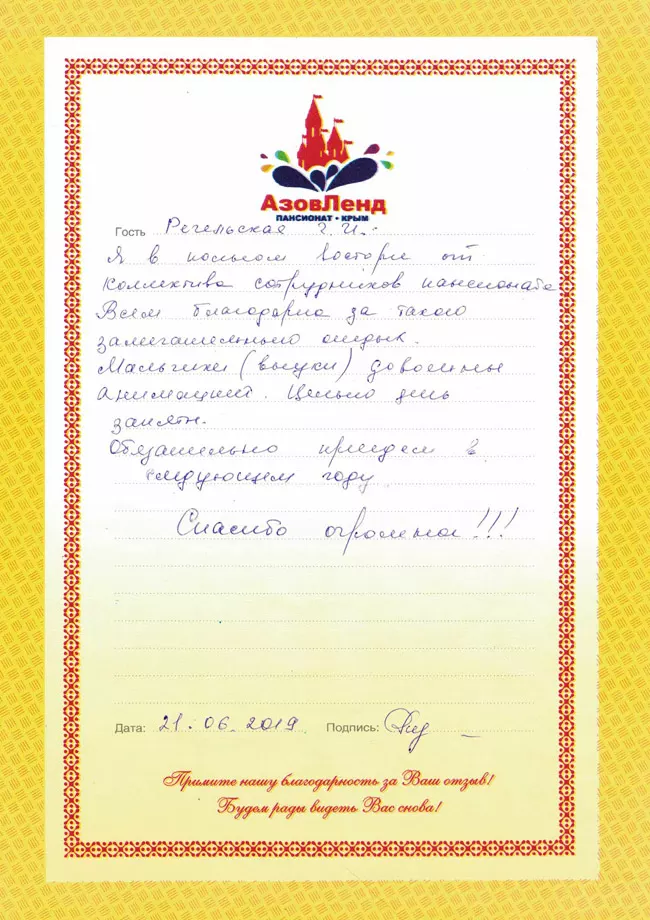 АзовЛенд
ПАНСИОНАТ • КРЫМ
Гость Регельская Г. И.
Я в полном восторге от
коллектива сотрудников пансионата
Всем благодарна за такого
замечательного отдых.
Мальчики (внуки) довольны
анимацией. Целый день
заняты.
Обязательно приедем в
следующем году
Спасибо огромное!!!
Дата: 21.06.2019 Подпись:
Примите нашу благодарность за Ваш отзыв!
Будем рады видеть Вас снова!